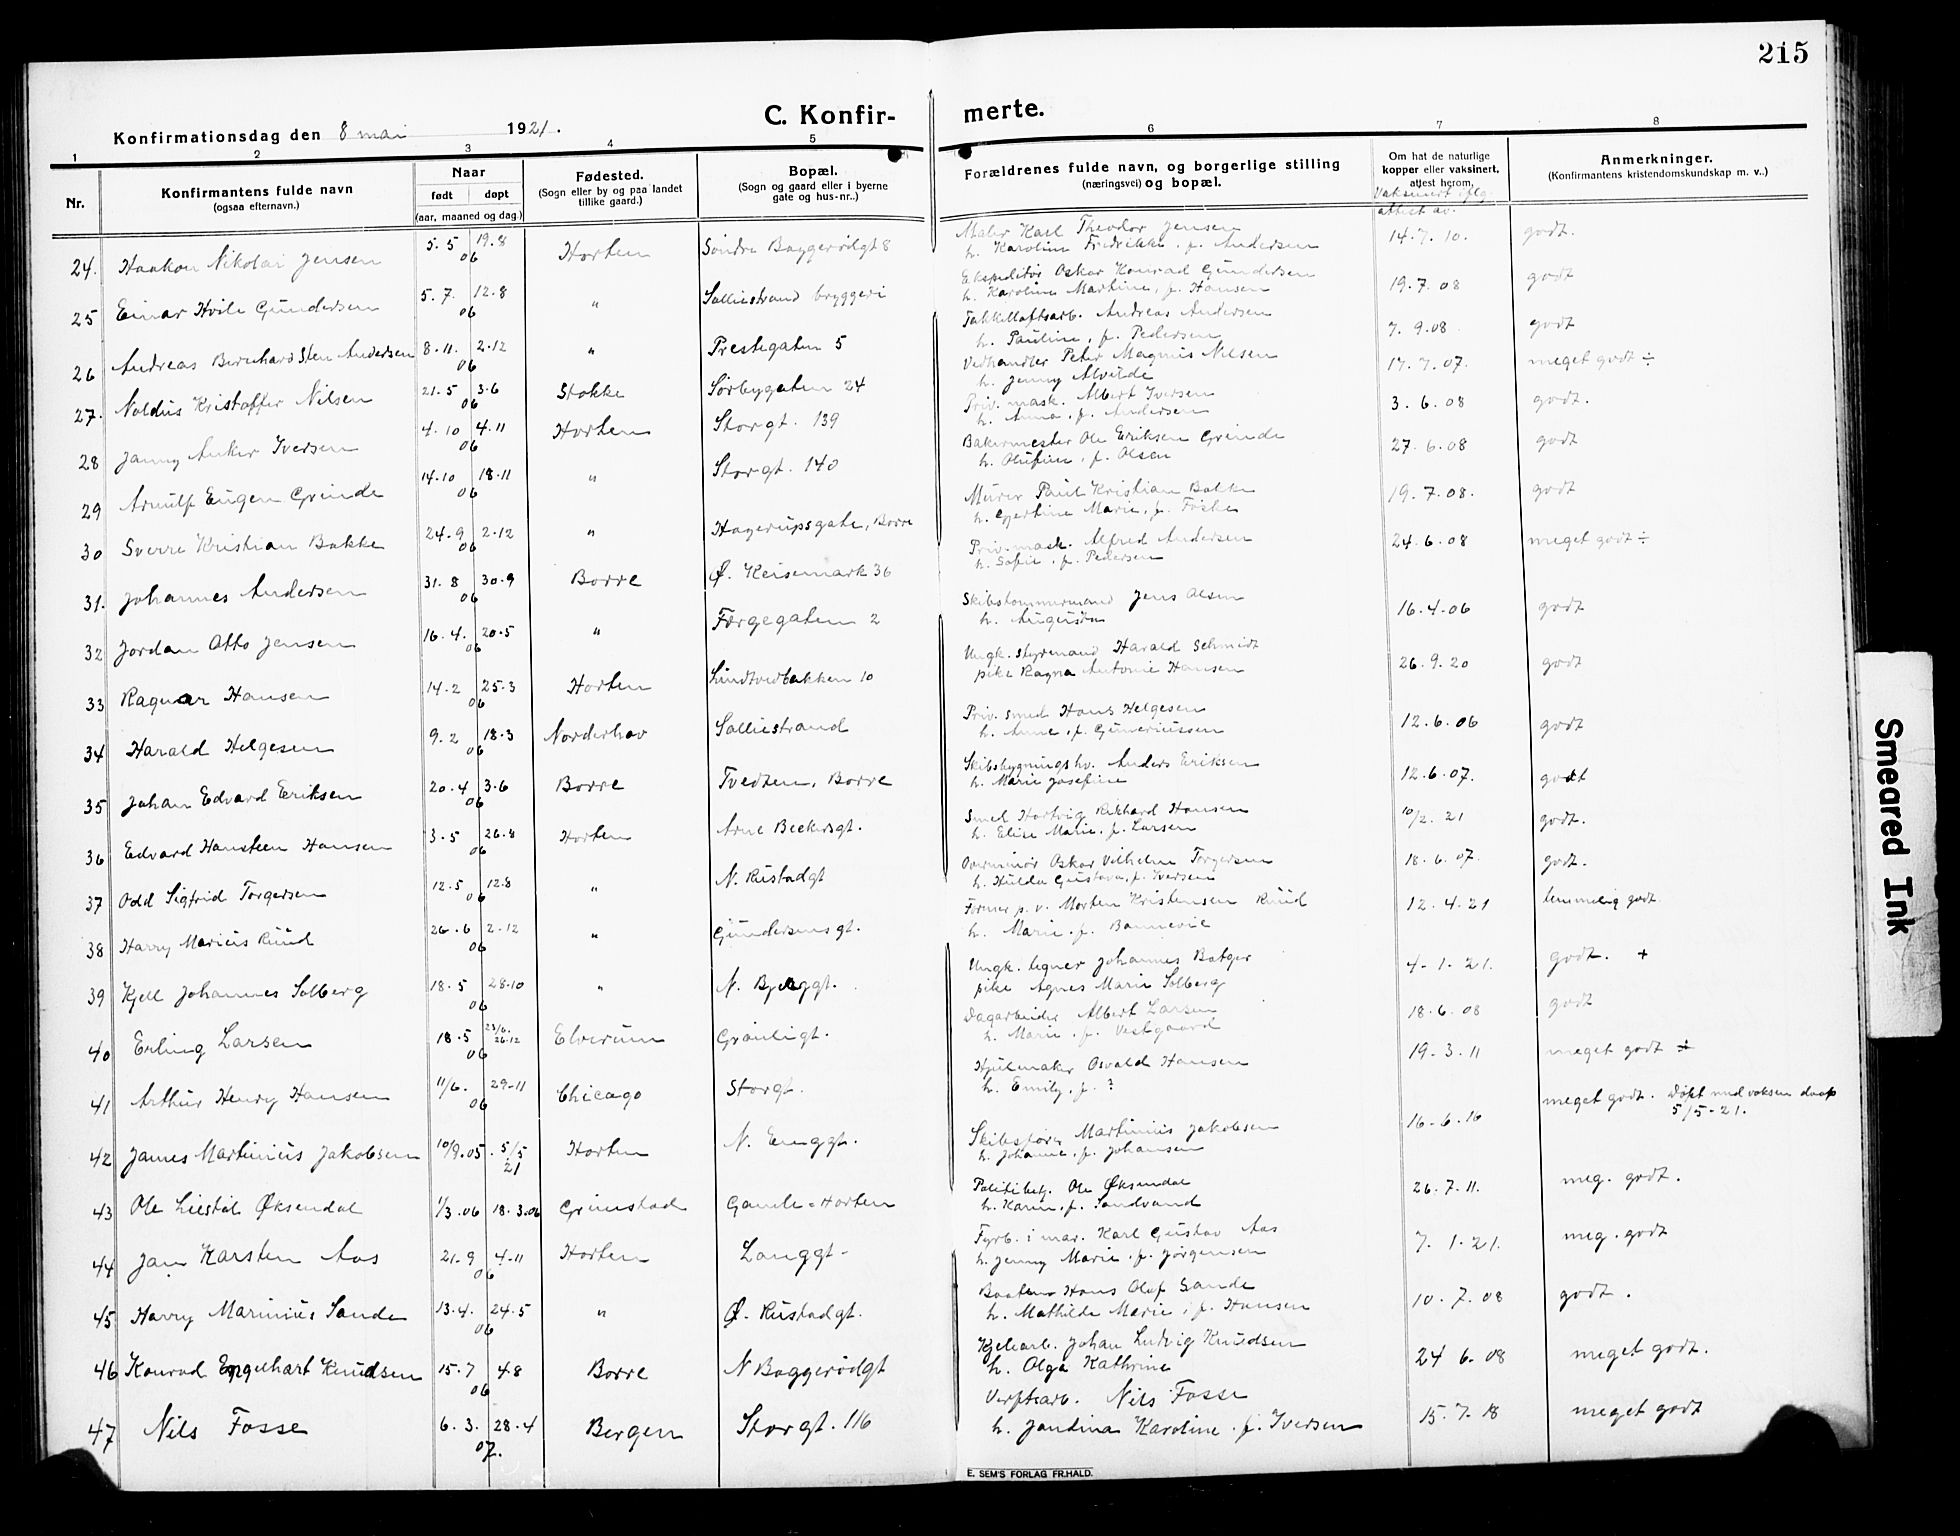 215
C. Konfirmerte.
Konfirmationsdag den 8 mai 1921.
1 2 3 4 5 6 7 8
Nr.
Konfirmantens fulde navn
(ogsaa efternavn.)
Naar
født døpt
(aar, maaned og dag.)
Fødested.
(Sogn eller by og paa landet
tillike gaard.)
Bopæl.
(Sogn og gaard eller i byerne
gate og hus-nr..)
Forældrenes fulde navn, og borgerlige stilling
(næringsvei) og bopæl.
Om hat de naturlige
kopper eller vaksinert,
attest herom.
Vaksinert iflg.
attest av.
Anmerkninger.
(Konfirmantens kristendomskundskap m. v..)
24. Haakon Nikolai Jensen 5.5 19.8 06 Horten Søndre Baggerødgt 8 Maler Karl Theodor Jensen 14.7.10. godt.
h. Karoline Fredrikke, f. Andersen
25 Einar Hvile Gundersen 5.7. 12.8 06 " Solliestrand bryggeri Ekspeditør Oskar Konrad Gundersen 19.7.08 godt
h. Karoline Martine, f. Hansen
26 Andreas Bernhard Sten Andersen 8.11. 2.12 06 " Prestegaten 5 Takkelloftsarb. Andreas Andersen 7.9.08. godt
h. Pauline, f. Pedersen
27. Noldus Kristoffer Nilsen 21.5 3.6 06 Stokke Sørbygaten 24 Vedhandler Peter Magnus Nilsen 17.7.07. meget godt ÷
h. Jenny Alvilde
28 Janny Anker Iversen 4.10 4.11 06 Horten Storgt. 139 Priv. mask. Albert Iversen 3.6.08 godt.
h. Anna, f. Andersen
29 Arnulf Eugen Grinde 14.10 18.11 06 " Storgt. 140 Bakermester Ole Eriksen Grinde 27.6.08 godt
h. Olufine, f. Olsen
30 Sverre Kristian Bakke 24.9 2.12 06 " Hagerupsgate, Borre Murer Paul Kristian Bakke 19.7.08. godt
h. Gjertine Marie, f. Foske
31. Johannes Andersen 31.8 30.9 06 Borre Ø. Keisemark 36 Priv. mask. Alfred Andersen 24.6.08 meget godt ÷
h. Sofie, f. Pedersen
32 Jordan Otto Jensen 16.4. 20.5 06 " Færgegaten 2 Skibstømmermand Jens Olsen 16.4.06 godt
h. Augusta
33 Ragnar Hansen 14.2 25.3 06 Horten Lindtvedbakken 10 Ungk. styrmand Harald Schmidt 26.9.20 godt
pike Ragna Antonie Hansen
34 Harald Helgesen 9.2 18.3 06 Norderhov Solliestrand Priv. smed Hans Helgesen 12.6.06 godt
h. Anne, f. Guneriussen
35 Johan Edvard Eriksen 20.4 3.6 06 Borre Tvedten, Borre Skibsbygningshv. Anders Eriksen 12.6.07. godt
h. Marie Josefine
36 Edvard Hansteen Hansen 3.5 26.8 06 Horten Arne Beckersgt. Smed Hartvig Rikhard Hansen 10/2.21 godt.
h. Elise Marie, f. Larsen
37 Odd Sigfrid Torgersen 12.5 12.8 06 " N. Rustadgt Overminør Oskar Vilhelm Torgersen 18.6.07. godt.
h. Hulda Gustava, f. Iversen
38 Harry Marius Ruud 26.6 2.12 06 " Gundersensgt. Former p. v. Morten Kristensen Ruud 12.4.21 temmelig godt
h. Marie, f. Bonnevie
39 Kjell Johannes Solberg 18.5 28.10 06 " N. Bjerggt. Ungk. tegner Johannes Bøtger 4.1.21. godt. +
pike Agnes Marie Solberg
40 Erling Larsen 18.5 23/6. 26.12 06 Elverum Grønligt. Dagarbeider Albert Larsen 18.6.08 godt
h. Marie, f. Vestgaard
41 Arthur Henry Hansen 11/6. 29.11 06 Chicago Storgt. Hjulmaker Osvald Hansen 19.3.11 meget godt ÷
h. Emily, f. ?
42 James Martinius Jakobsen 10/9.05. 5/5 21 Horten N. Enggt. Skibsfører Martinius Jakobsen 16.6.16 meget godt. Døpt med voksen daap
h. Johanne, f. Johansen 5/5-21.
43 Ole Liestøl Øksendal 1/3.06 18.3.06 Grimstad Gamle-Horten Politibetj. Ole Øksendal 26.7.11. meg. godt.
h. Karen, f. Sandvand
44 Jan Karsten Aas 21.9 4.11 06 Horten Langgt. Fyrb. i mar. Karl Gustav Aas 7.1.21. meg. godt
h. Jenny Marie, f. Jørgensen
45 Harry Marinius Sande 13.4. 24.5 06 " Ø. Rustadgt. Baatsm Hans Olaf Sande 10.7.08 godt.
h. Mathilde Marie, f. Hansen
46 Konrad Engelhart Knudsen 15.7 4.8 06 Borre N Baggerødgt Kjelearb. Johan Ludvig Knudsen 24 6.08 meget godt.
h. Olga Kathrine
47 Nils Fosse 6.3. 28.4 07. Bergen Storgt. 116 Verftsarb. Nils Fosse 15.7.18 meget godt
h. Jandina Karoline, f. Iversen
E. SEM'S FORLAG FR.HALD.
Smeared Ink